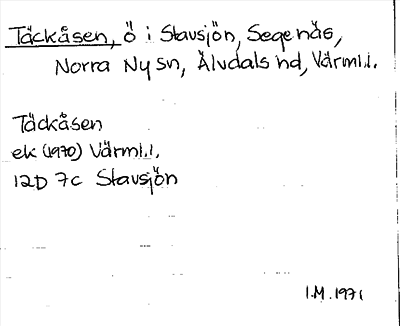 Täckåsen, ö i Stavsjön, Segenäs,
Norra Ny sn, Älvdals hd, Värml.l.
Täckåsen
ek (1970) Värml.l.
12D 7c Stavsjön
I.M. 1971